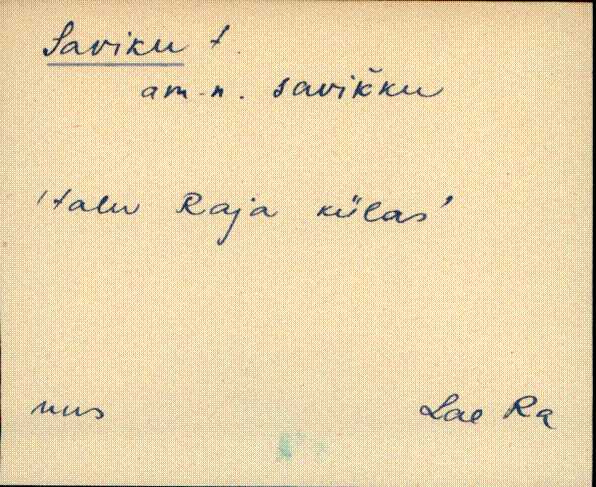 Saviku t.
am-n. savik̆ku
'talu Raja külas'
nus Lae Ra